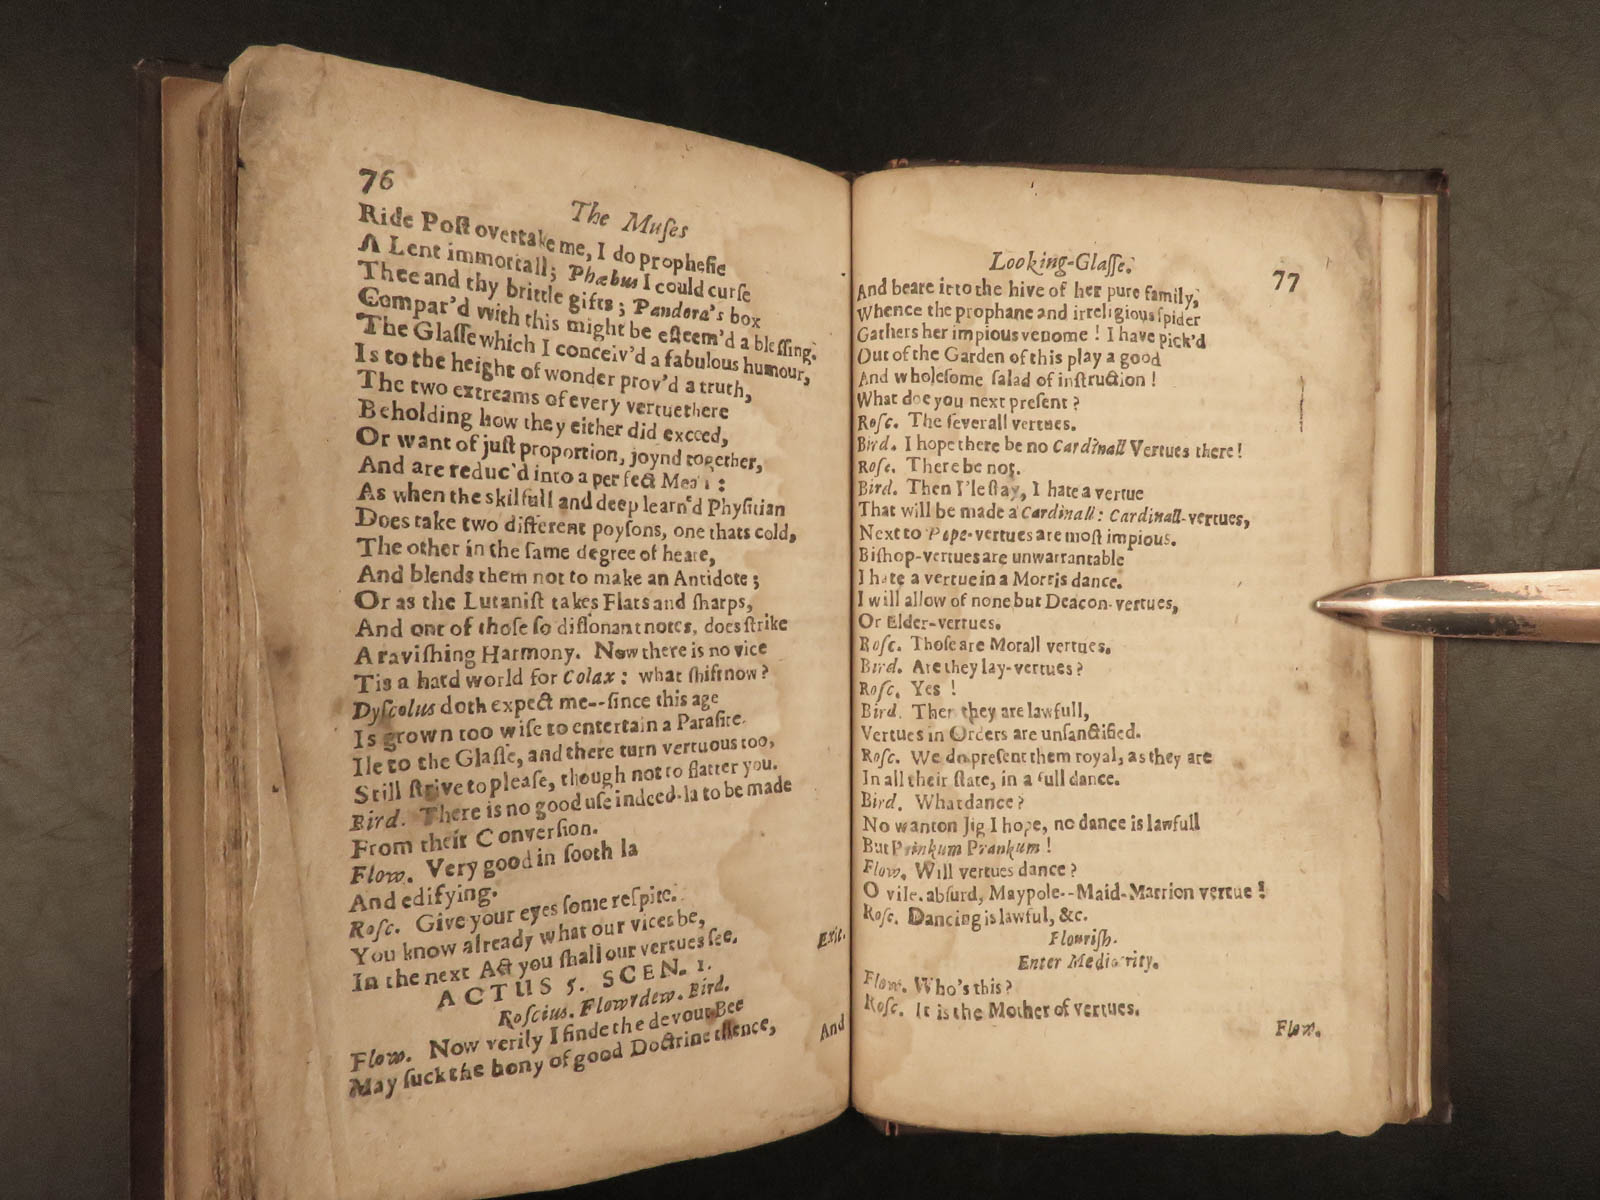 76
The Muſes
Ride Poſt overtake me, I do propheſie
A Lent immortall; Phœbus I could curſe
Thee and thy brittle gifts; Pandora's box
Compar'd with this might be eſteem'd a bleſſing.
The Glaſſe which I conceiv'd a fabulous humour,
Is to the height of wonder prov'd a truth,
The two extreams of every vertue there
Beholding how they either did exceed,
Or want of juſt proportion, joynd together,
And are reduc'd into a perfect Mean:
As when the skilfull and deep learn'd Phyſitian
Does take two different poyſons, one thats cold,
The other in the ſame degree of heate,
And blends them not to make an Antidote;
Or as the Lutaniſt takes Flats and ſharps,
And out of thoſe ſo diſſonant notes, does ſtrike
A raviſhing Harmony. Now there is no vice
Tis a hard world for Colax: what ſhift now?
Dyſcolus doth expect me--ſince this age
Is grown too wiſe to entertain a Paraſite.
Ile to the Glaſſe, and there turn vertuous too,
Still ſtrive to pleaſe, though not to flatter you.
Bird. There is no good uſe indeed-la to be made
From their Converſion.
Flow. Very good in ſooth la
And edifying.
Roſc. Give your eyes ſome reſpite.
You know already what our vices be,
In the next Act you ſhall our vertues ſee. Exit.
ACTUS 5. SCEN. 1.
Roſcius. Flowrdew. Bird.
Flow. Now verily I finde the devout Bee
May ſuck the hony of good Doctrine thence,
And
Looking-Glaſſe. 77
And beare it to the hive of her pure family,
Whence the prophane and irreligious ſpider
Gathers her impious venome! I have pick'd
Out of the Garden of this play a good
And wholeſome ſalad of inſtruction!
What doe you next preſent?
Roſc. The ſeverall vertues.
Bird. I hope there be no Cardinall Vertues there!
Roſc. There be not.
Bird. Then I'le ſtay, I hate a vertue
That will be made a Cardinall: Cardinall-vertues,
Next to Pope-vertues are moſt impious.
Biſhop-vertues are unwarrantable
I hate a vertue in a Morris dance.
I will allow of none but Deacon-vertues,
Or Elder-vertues.
Roſc. Thoſe are Morall vertues.
Bird. Are they lay-vertues?
Roſc. Yes!
Bird. Then they are lawfull,
Vertues in Orders are unſanctified.
Roſc. We do preſent them royal, as they are
In all their ſtate, in a full dance.
Bird. What dance?
No wanton Jig I hope, no dance is lawfull
But Prinkum Prankum!
Flow. Will vertues dance?
O vile, abſurd, Maypole--Maid-Marrion vertue!
Roſc. Dancing is lawful, &c.
Flouriſh.
Enter Mediocrity.
Flow. Who's this?
Roſc. It is the Mother of vertues.
Flow.